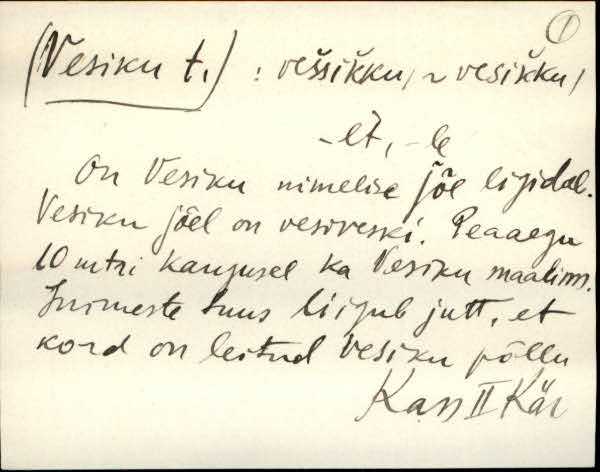 1
(Vesiku t.) : veššikku, ~ vesikku,
-et, -le
On Vesiku nimelise jõe ligidal.
Vesiku jõel on vesiveski. Peaaegu
10 mtri kaugusel ka Vesiku maalinn.
Inimeste suus liigub jutt, et
kord on leitud Vesiku põllu
Kass II Kär